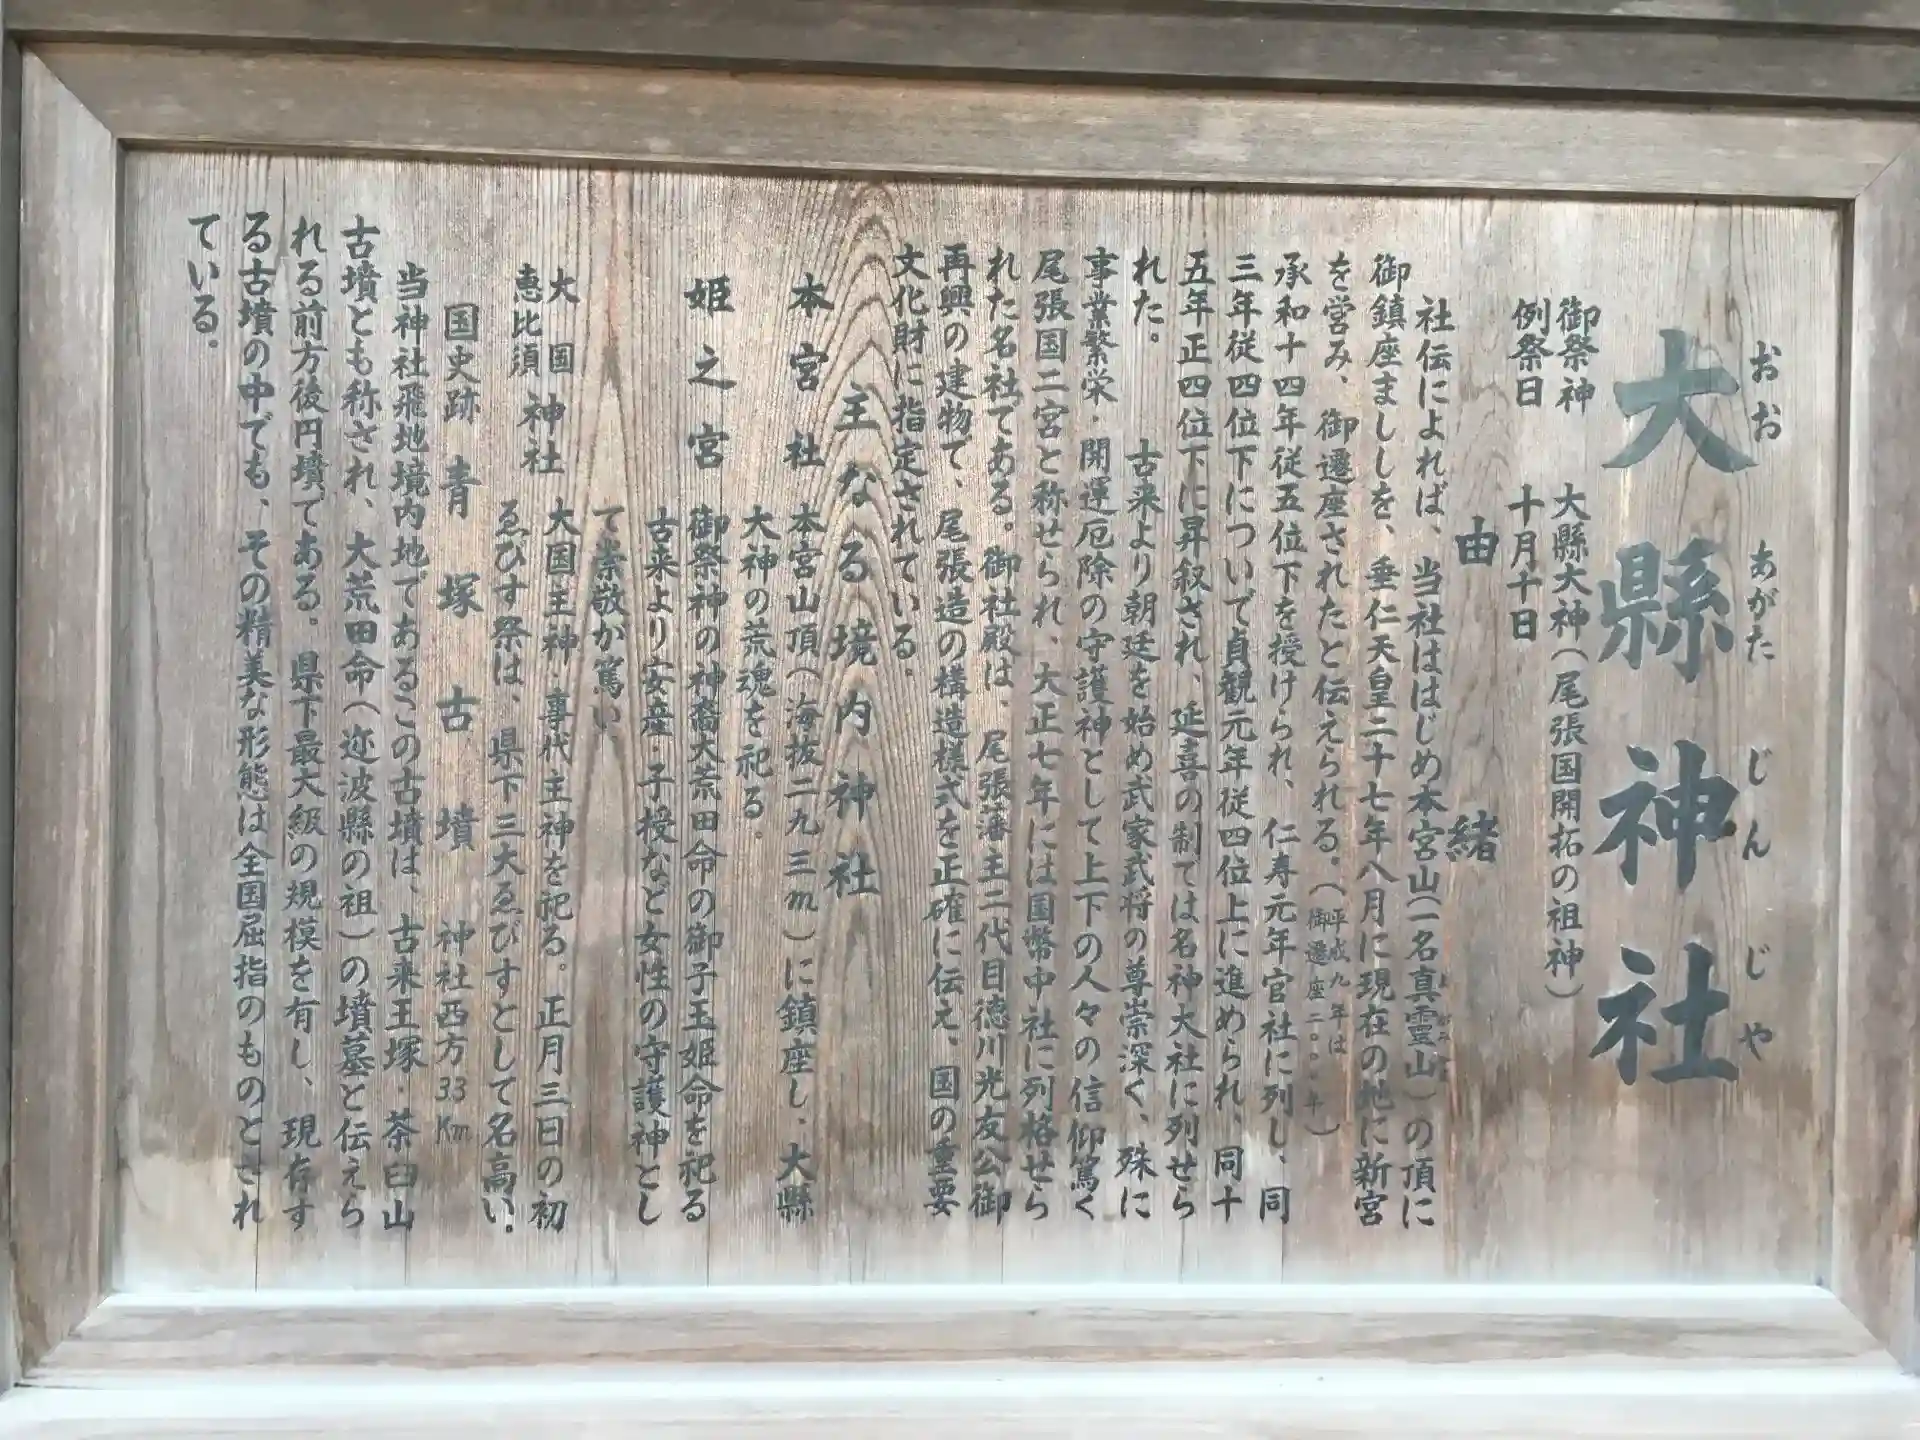 おお あがた じん じや
大縣神社
御祭神 大縣大神(尾張国開拓の祖神)
例祭日 十月十日
由緒
社伝によれば、当社ははじめ本宮山(一名真霊山)の頂に
御鎮座ましましを、垂仁天皇二十七年八月に現在の地に新宮
を営み、御遷座されたと伝えられる。(平成九年は御遷座二〇〇〇年)
承和十四年従五位下を授けられ、仁寿元年官社に列し、同
三年従四位下についで貞観元年従四位上に進められ、同十
五年正四位下に昇叙され、延喜の制では名神大社に列せら
れた。 古来より朝廷を始め武家武将の尊崇深く、殊に
事業繁栄・開運厄除の守護神として上下の人々の信仰篤く
尾張国二宮と称せられ、大正七年には国幣中社に列格せら
れた名社である。御社殿は、尾張藩主二代目徳川光友公御
再興の建物で、尾張造の構造様式を正確に伝え、国の重要
文化財に指定されている。
主なる境内神社
本宮社 本宮山頂(海抜二九三m)に鎮座し、大縣
大神の荒魂を祀る。
姫之宮 御祭神の神裔大荒田命の御子玉姫命を祀る
古来より安産・子授など女性の守護神とし
て崇敬が篤い
大国恵比須神社 大国主神・事代主神を祀る。正月三日の初
ゑびす祭は、県下三大ゑびすとして名高い。
国史跡 青塚古墳 神社西方33Km
当神社飛地境内地であるこの古墳は、古来王塚・茶臼山
古墳とも称され、大荒田命(迩波縣の祖)の墳墓と伝えら
れる前方後円墳である。県下最大級の規模を有し、現存す
る古墳の中でも、その精美な形態は全国屈指のものとされ
ている。